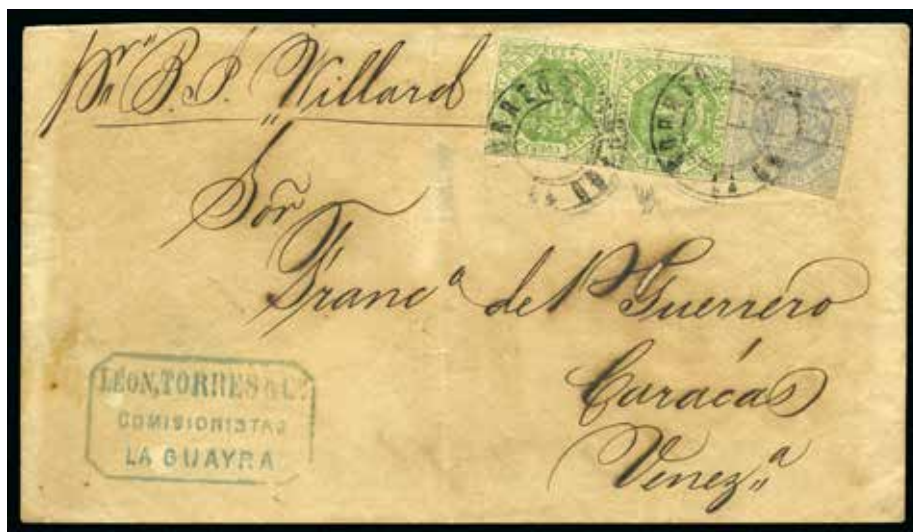 pr. B. P. "Willard"
Sór
Franc.ª del P Guerrero
Carácas
Venez.ª
LEON, TORRES & Cª.
COMISIONISTAS
LA GUAYRA